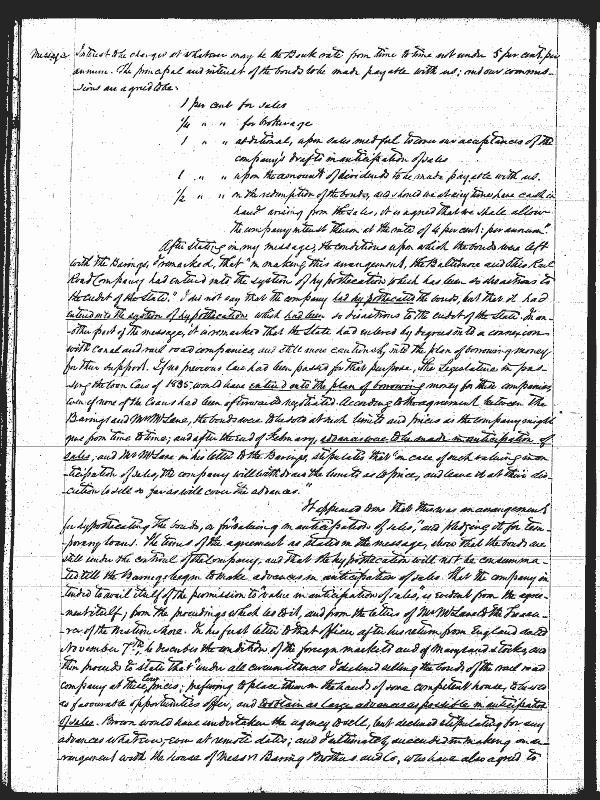 Message
Interest to be charged at whatever may be the Bank rate from time to time not under 5 per cent. per
annum. The principal and interest of the bonds to be made payable with us; and our commis-
sions are agreed to be:
1 per cent for sales
1/4 " " for brokerage
1 " " additional, upon sales made ful to cover our acceptances of the
company's drafts in anticipation of sales
1 " " upon the amount of dividends to be made payable with us.
1/2 " " on the redemption of the bonds, and should we at any time have cash in
hand arising from the sales, it is agreed that we shall allow
the company interest thereon at the rate of 4 per cent: per annum."
After stating in my message, the conditions upon which the bonds was left
with the Barings, I remarked, that "in making this arrangement, the Baltimore and Ohio Rail
Road Company had entered into the system of hypothecation which has been so disastrous to
the credit of the State." I do not say that the company had hypothecated the bonds, but that it had
entered into the system of hypothecation which had been so disastrous to the credit of the State. In an-
other part of the message, it is remarked that the State had entered by degrees into a connexion
with canal and rail road companies and still more cautiously into the plan of borrowing money
for their support. If no previous law had been passed for that purpose, the Legislature in pass-
ing the loan law of 1835 would have entered into the plan of borrowing money for these companies,
even if none of the loans had been afterwards negotiated. According to the agreement between the
Barings and Mr McLane, the bonds were to be sold at such limits and prices as the company might
give from time to time; and after the end of February, advances was to be made in anticipation of
sales; and Mr McLane in his letter to the Barings, stipulates that "in case of such valuing in an-
ticipation of sales, the company will withdraw the limits as to prices, and leave it at their dis-
cretion to sell so far as will cover the advances."
It appeared to me that this was an arrangement
for hypothecating the bonds, or for "valuing in anticipation of sales," and pledging it for tem-
porary loans. The terms of the agreement as stated in the message, show that the bonds are
still under the control of the company, and that the hypothecation will not be consumma-
ted till the Barings begin to make advances in anticipation of sales. That the company in-
tended to avail itself of the permission to "value in anticipation of sales," is evident from the agree-
ment itself; from the proceedings which led to it, and from the letters of Mr McLane to the Treasu-
rer of the Western Shore. In his first letter to that officer, after his return from England dated
November 7th, he describes the condition of the foreign markets and of Maryland stocks, and
then proceeds to state that "under all circumstances I declined selling the bonds of the rail road
company at these low prices; preferring to place them in the hands of some competent house, to be used
as favourable opportunities offer, and to obtain as large advances as possible in anticipation
of sales. Brown would have undertaken the agency to sell, but declined stipulating for any
advances whatever, even at remote dates; and I ultimately succeeded in making an ar-
rangement with the house of Messrs Baring Brothers and Co, who have also agreed to